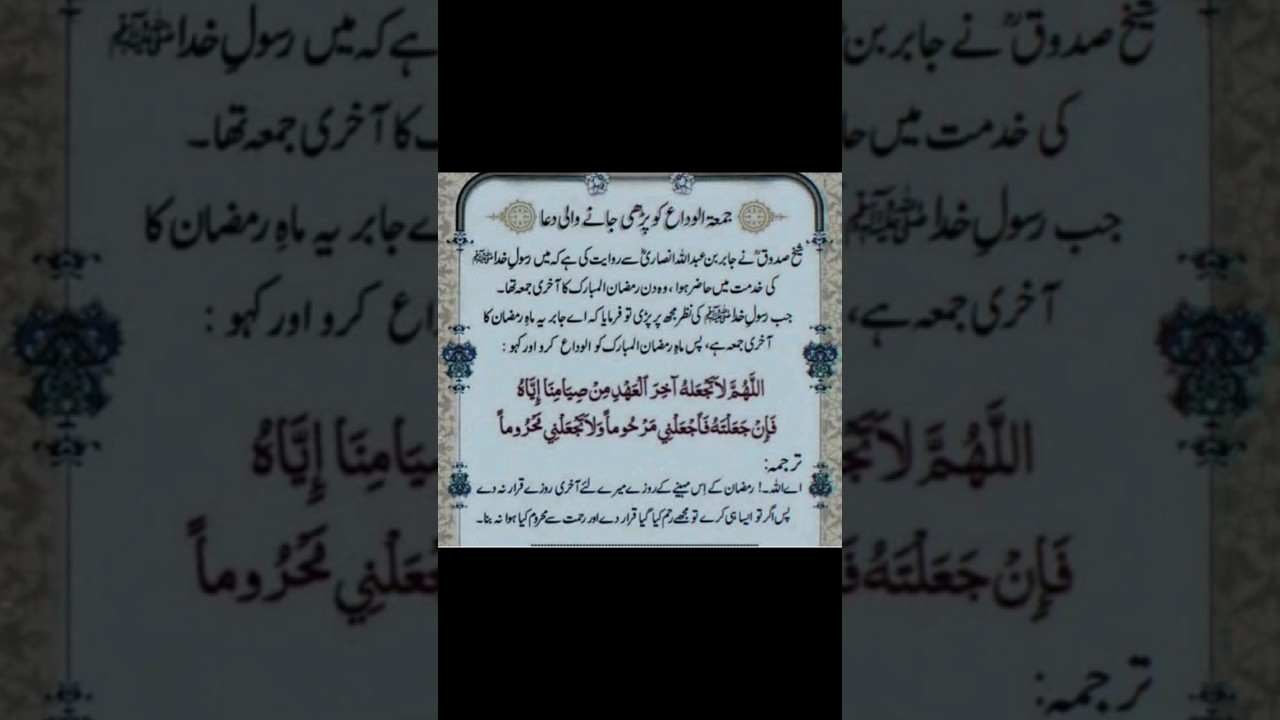 جمعۃ الوداع کو پڑھی جانے والی دعا
شیخ صدوقؒ نے جابر بن عبداللہ انصاریؓ سے روایت کی ہے کہ میں رسولِ خدا ﷺ
کی خدمت میں حاضر ہوا ، وہ دن رمضان المبارک کا آخری جمعہ تھا۔
جب رسولِ خدا ﷺ کی نظر مجھ پر پڑی تو فرمایا کہ اے جابر یہ ماہِ رمضان کا
آخری جمعہ ہے، پس ماہِ رمضان المبارک کو الوداع کرو اور کہو :
اللَّهُمَّ لاَ تَجْعَلهُ آخِرَ الْعَهْدِ مِنْ صِيَامِنَا إِيَّاهُ
فَإِنْ جَعَلْتَهُ فَاجْعَلْنِي مَرْحُوماً وَلاَ تَجْعَلْنِي مَحْرُوماً
ترجمہ:
اے اللہ۔! رمضان کے اِس مہینے کے روزے میرے لئے آخری روزے قرار نہ دے
پس اگر تو ایسا ہی کرے تو مجھے رحم کیا گیا قرار دے اور رحمت سے محروم کیا ہوا نہ بنا۔